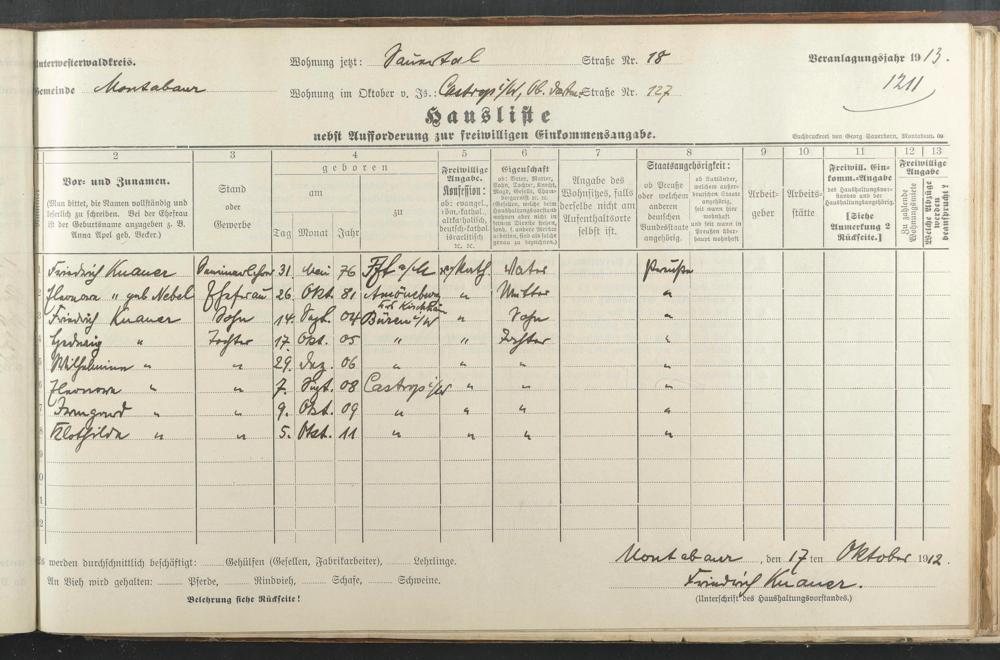 Unterwesterwaldkreis. Wohnung jetzt: Sauertal Straße Nr. 18 Veranlagungsjahr 1913.
Gemeinde Montabaur Wohnung im Oktober v. Js.: Castrop i/W, Ob. Straße Nr. 127 1211
Hausliste
nebst Aufforderung zur freiwilligen Einkommensangabe.
Buchdruckerei von Georg Sauerborn, Montabaur.
1 2 3 4 5 6 7 8 9 10 11 12 13
Vor- und Zunamen.
(Man bittet, die Namen vollständig und
leserlich zu schreiben. Bei der Ehefrau
ist der Geburtsname anzugeben z. B.
Anna Apel geb. Becker.)
Stand
oder
Gewerbe
geboren
am
Tag Monat Jahr
zu
Freiwillige
Angabe.
Konfession:
ob: evangel.,
röm.-kathol.,
altkatholisch,
deutsch-kathol.
israelitisch
etc. etc.
Eigenschaft
ob: Vater, Mutter,
Sohn, Tochter, Knecht,
Magd, Geselle,
Angabe des
Wohnsitzes, falls
derselbe nicht am
Aufenthaltsorte
selbst ist.
Staatsangehörigkeit:
ob Preuße
oder welchem
anderen
deutschen
Bundesstaate
angehörig.
ob Ausländer,
welchem außer-
deutschen Staate
angehörig,
seit wann hier
wohnhaft
und seit wann in
Preußen über-
haupt wohnhaft
Arbeit-
geber
Arbeits-
stätte
Freiwill. Ein-
komm.-Angabe
des Haushaltungsvor-
standes und der
Haushaltungsangehörig.
[Siehe
Anmerkung 2
Rückseite.]
Freiwillige
Angabe
Zu zahlende
Wohnungsmiete
Welche Abzüge
werden
beansprucht?
1 Friedrich Knauer Seminarlehrer 31. Mai 76 Fft a/M Kath Vater Preuße
2 Eleonora " geb Nebel Ehefrau 26. Okt. 81 Amöneburg " Mutter "
3 Friedrich Knauer Sohn 14. Sept. 04 Büren i/W " Sohn "
4 Hedwig " Tochter 17. Okt. 05 " " Tochter "
5 Wilhelmine " " 29. Dez. 06 " " " "
6 Eleonora " " 7. Sept. 08 Castrop i/W " " "
7 Irmgard " " 9. Okt. 09 " " " "
8 Klothilde " " 5. Okt. 11 " " " "
Es werden durchschnittlich beschäftigt: Gehülfen (Gesellen, Fabrikarbeiter), Lehrlinge.
Montabaur, den 17 ten Oktober 1912.
An Vieh wird gehalten: Pferde, Rindvieh, Schafe, Schweine.
Friedrich Knauer.
Belehrung siehe Rückseite!
(Unterschrift des Haushaltungsvorstandes.)